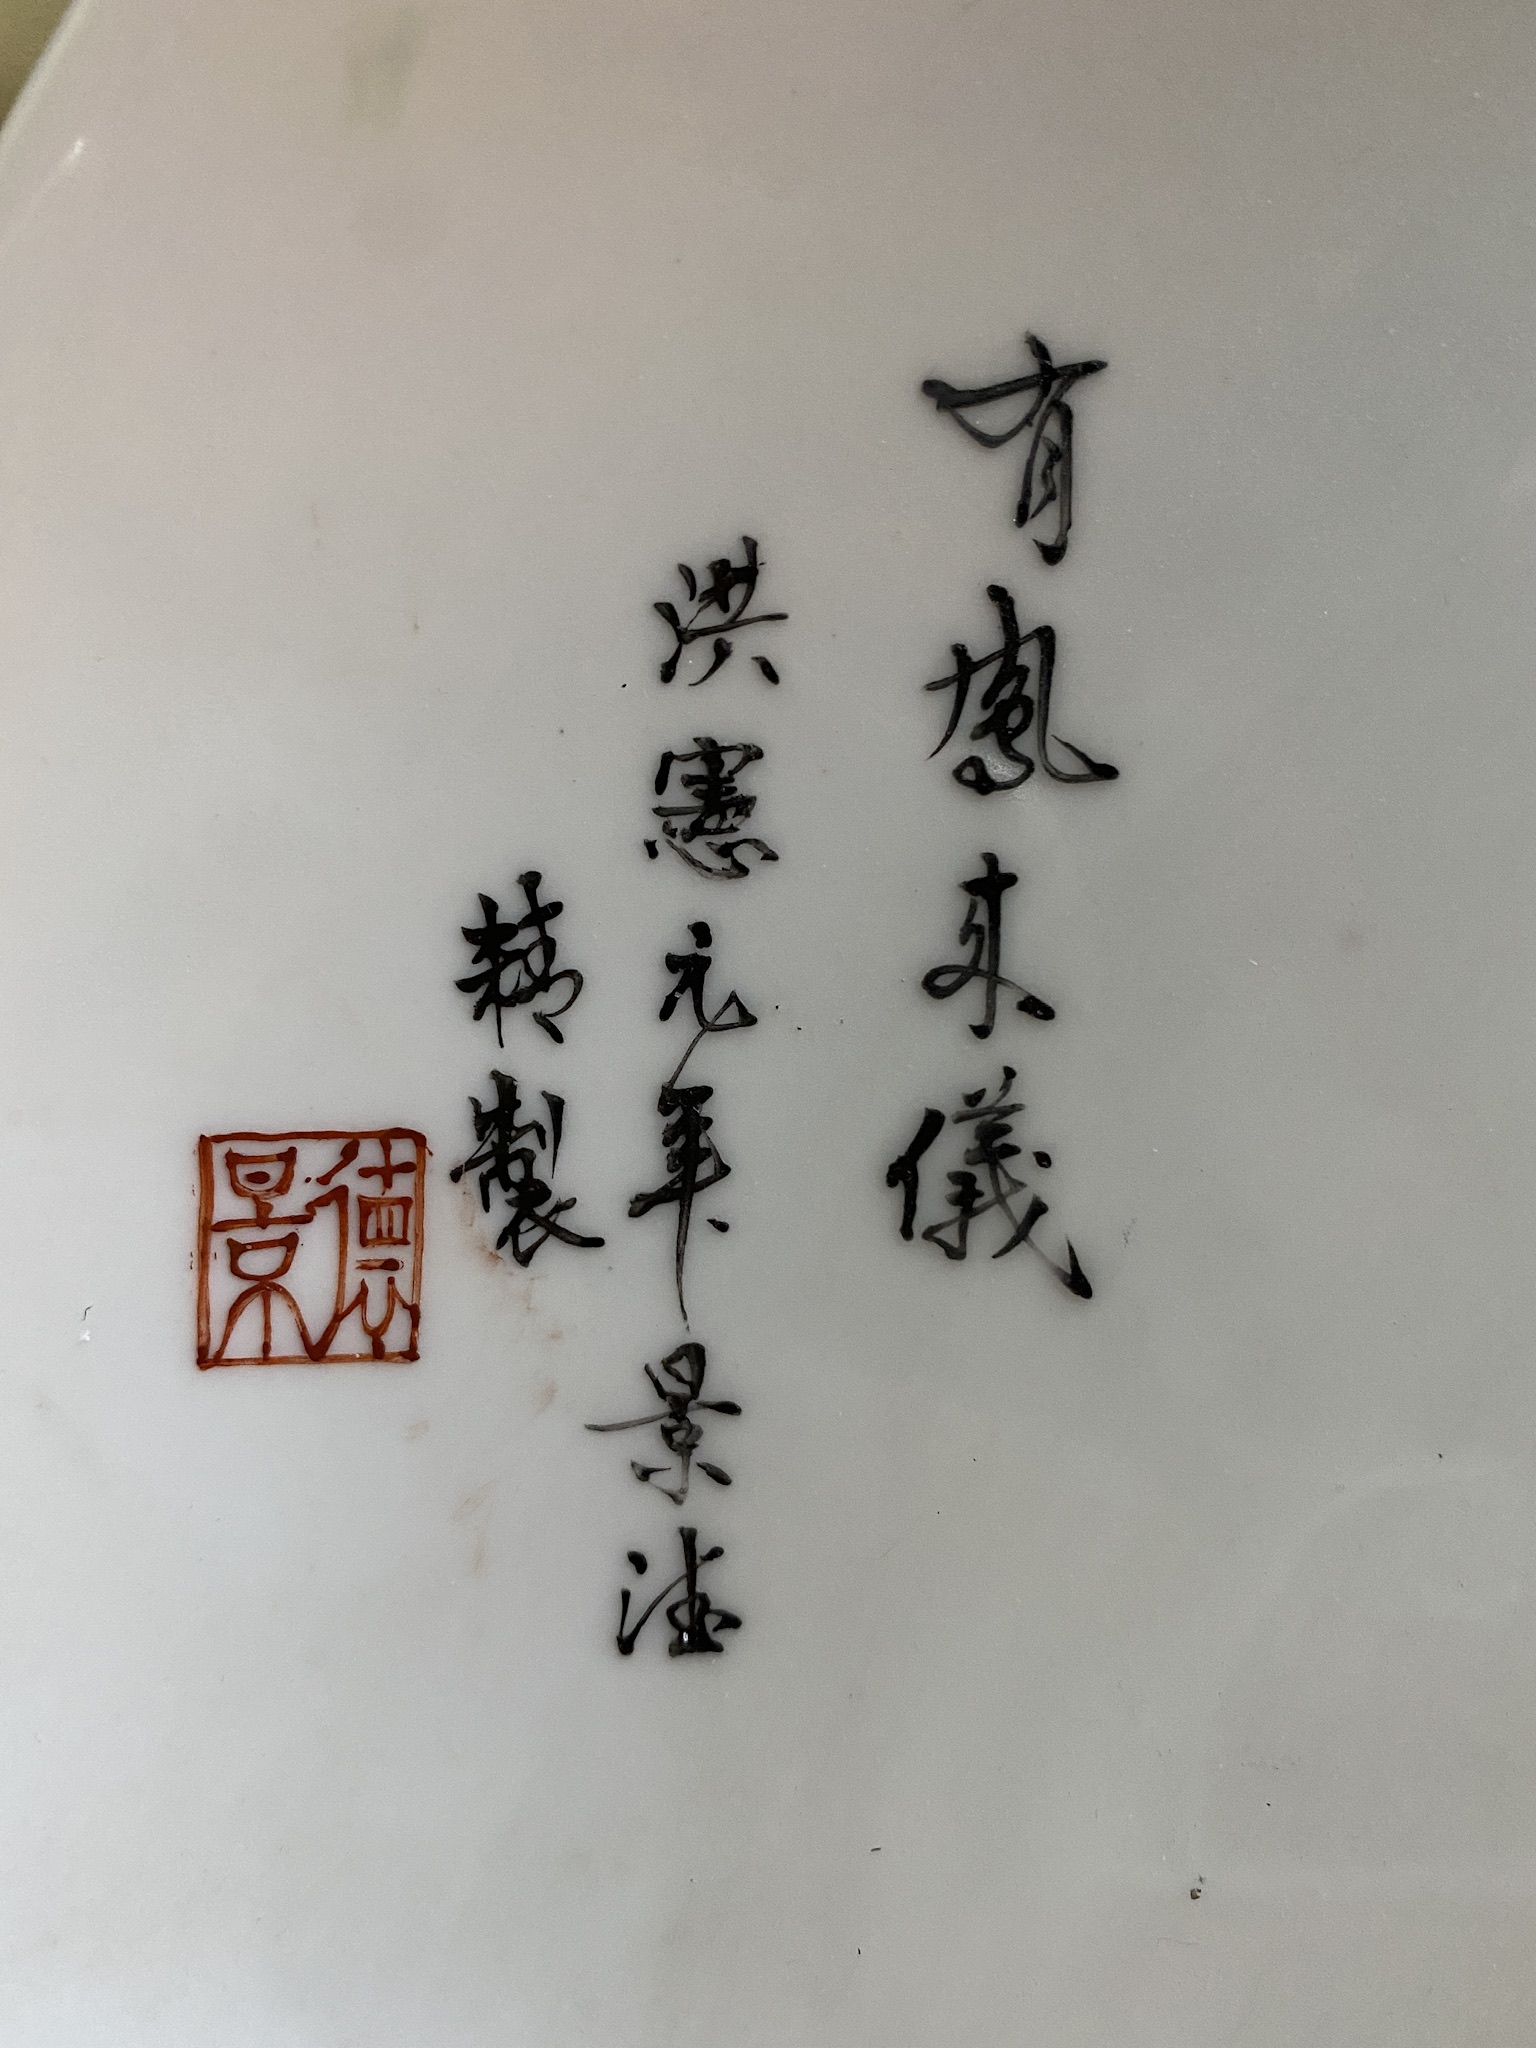 有鳳來儀
洪憲元年景德
精製
德景